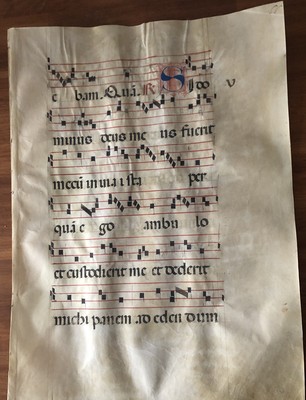 e bam. Quā. R Si do v
minus deus me us fuerit
mecū in via ista per
quā e go ambu lo
et custodierit me et dederit
michi panem ad eden dum